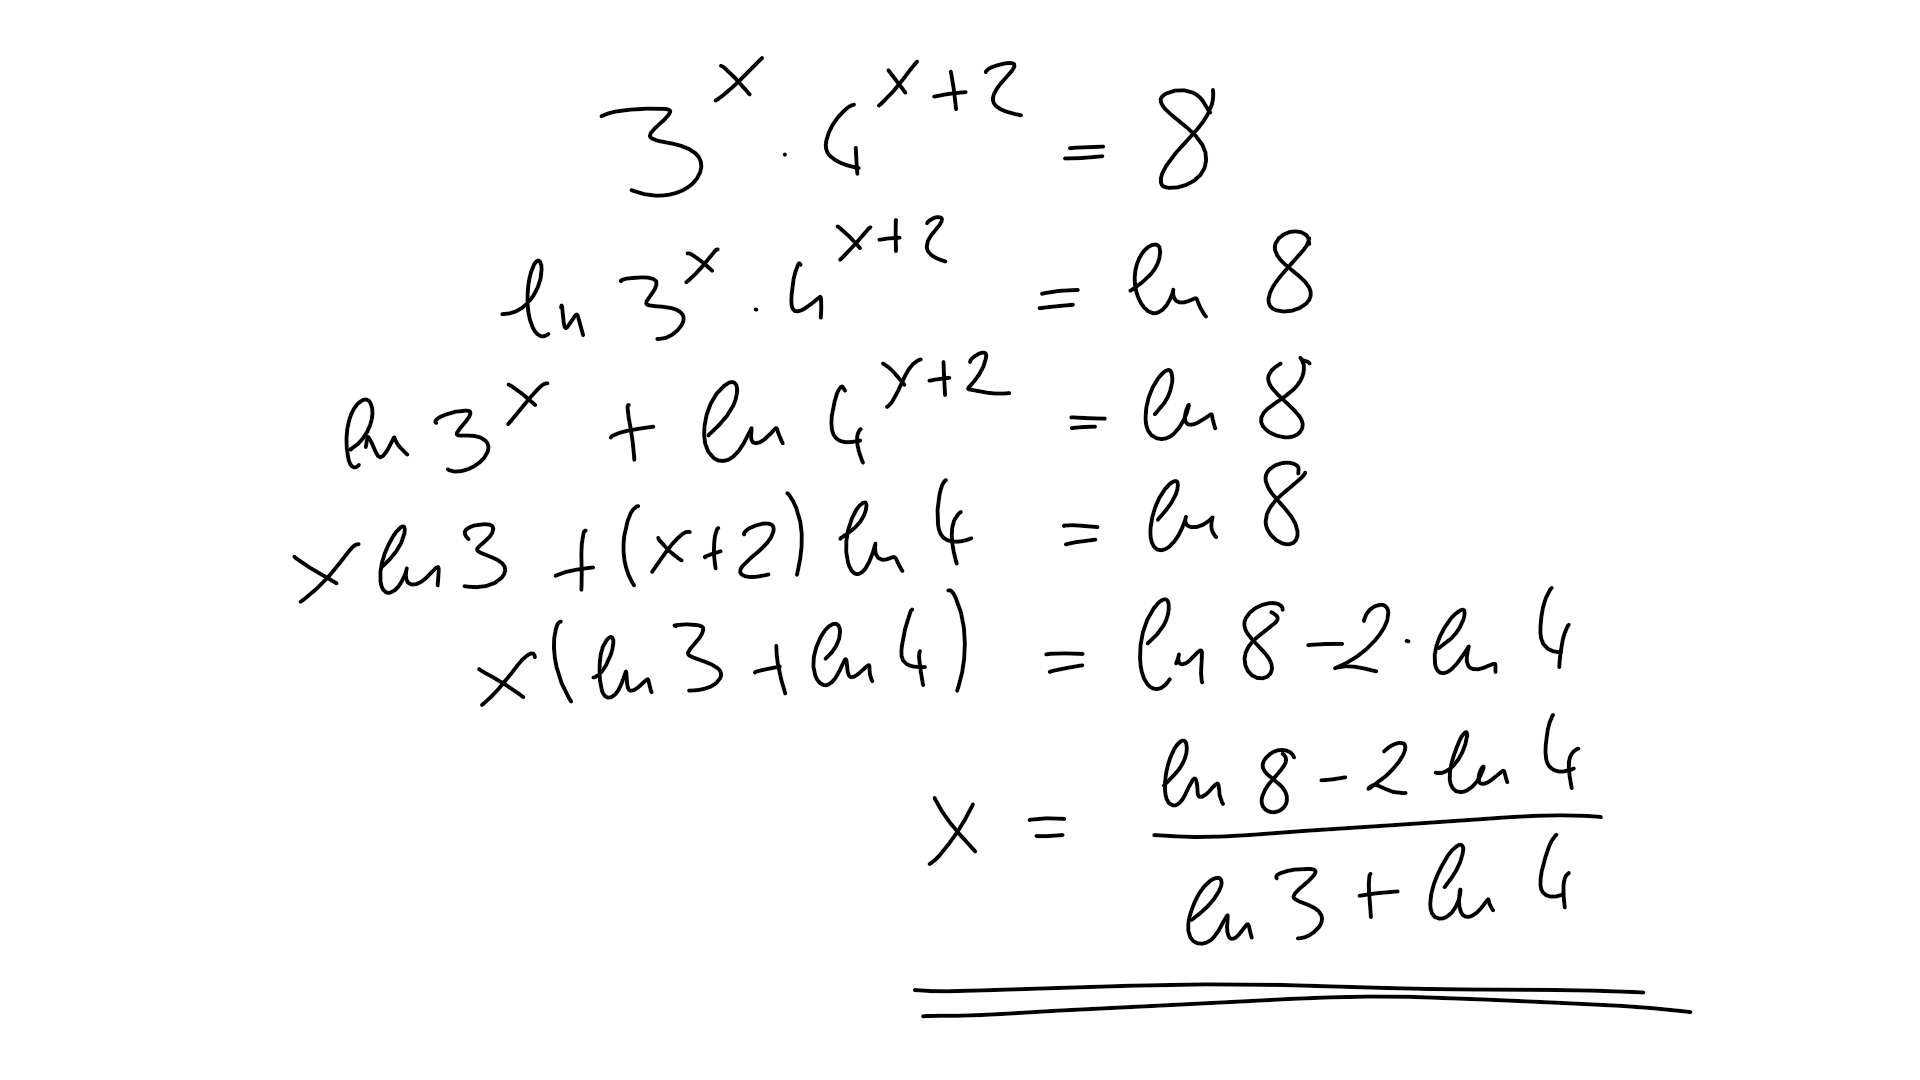 3^x · 4^{x+2} = 8
ln 3^x · 4^{x+2} = ln 8
ln 3^x + ln 4^{x+2} = ln 8
x ln 3 + (x+2) ln 4 = ln 8
x (ln 3 + ln 4) = ln 8 - 2 · ln 4
x = \frac{ln 8 - 2 ln 4}{ln 3 + ln 4}